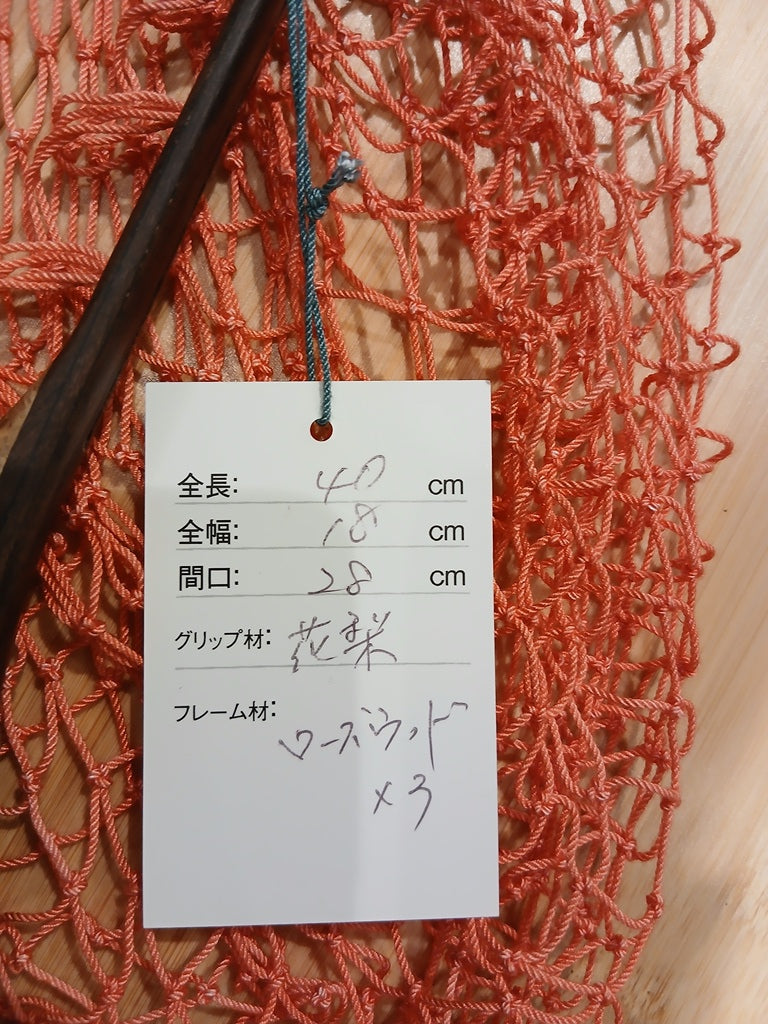 全長: 40 cm
全幅: 18 cm
間口: 28 cm
グリップ材: 花梨
フレーム材: ローズウッド
×3